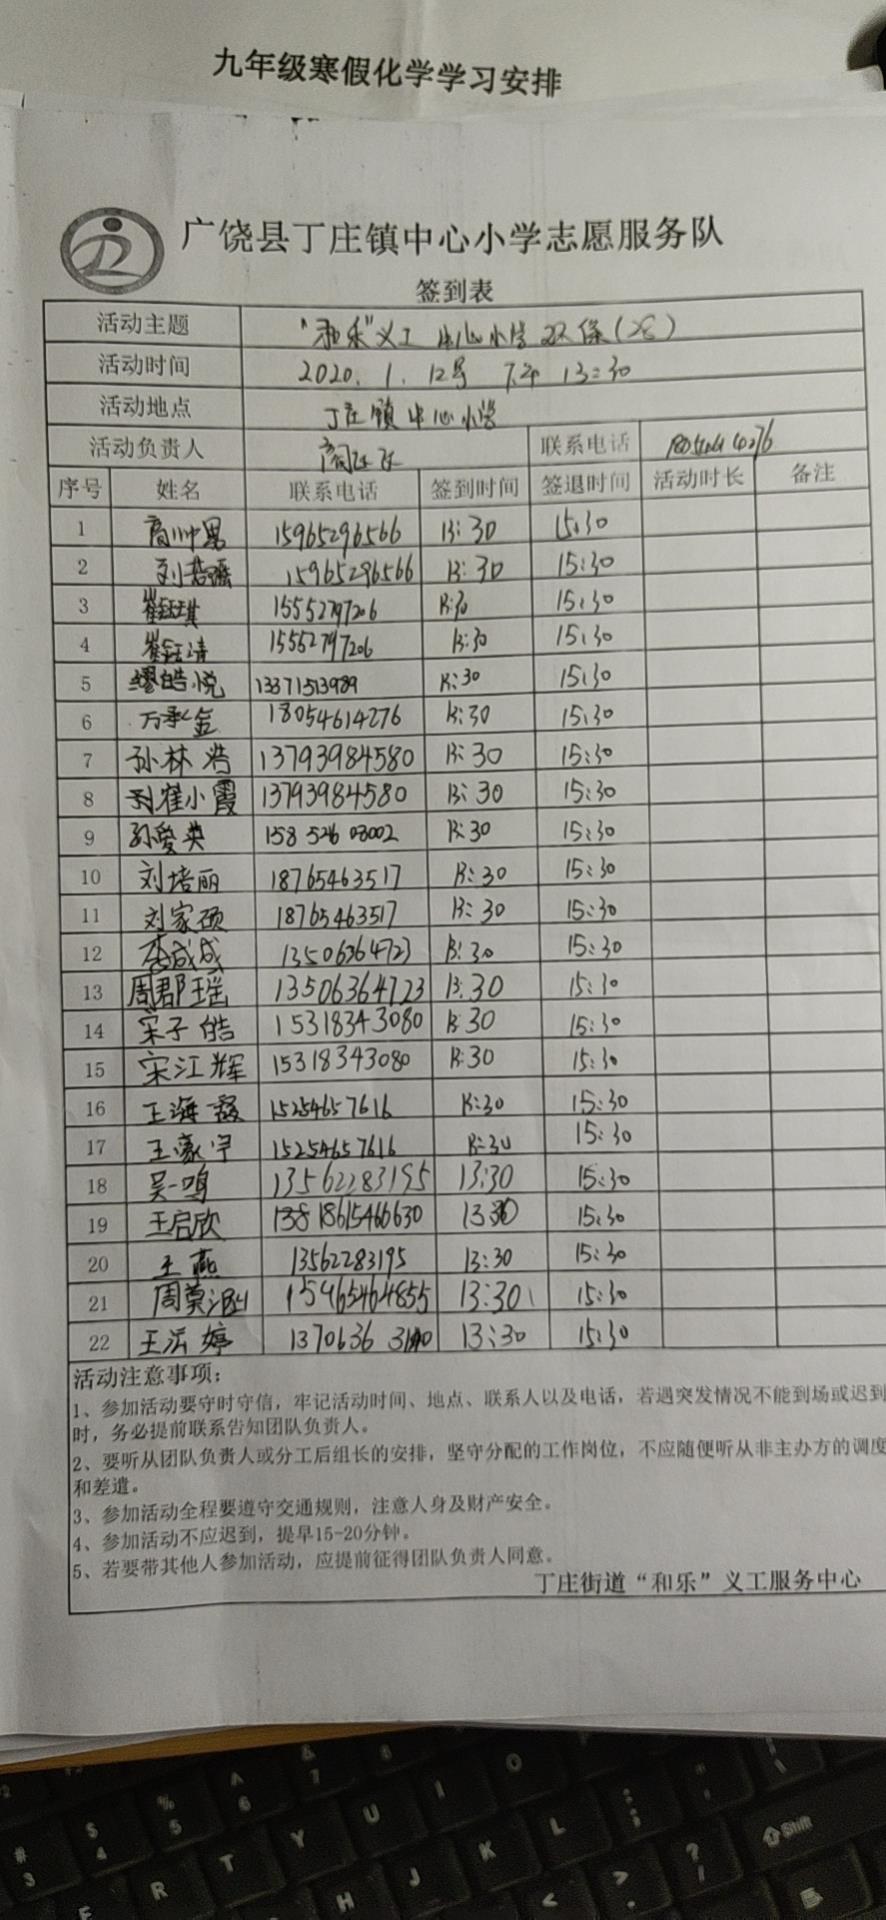 九年级寒假化学学习安排
广饶县丁庄镇中心小学志愿服务队
签到表
活动主题 "和乐"义工 中心小学
活动时间 2020.1.12号 下午 13:30
活动地点 丁庄镇中心小学
活动负责人 联系电话
序号 姓名 联系电话 签到时间 签退时间 活动时长 备注
1 15965296566 13:30 15:30
2 15965296566 13:30 15:30
3 15552797206 13:30 15:30
4 15552797206 13:30 15:30
5 13371513989 13:30 15:30
6 18054614276 13:30 15:30
7 孙林浩 13793984580 13:30 15:30
8 崔小霞 13793984580 13:30 15:30
9 孙爱英 13:30 15:30
10 刘培丽 18765463517 13:30 15:30
11 刘家硕 18765463517 13:30 15:30
12 李成成 13506364723 13:30 15:30
13 周郡瑶 13506364723 13:30 15:30
14 宋子皓 15318343080 13:30 15:30
15 宋江辉 15318343080 13:30 15:30
16 王海霞 15254657616 13:30 15:30
17 王豪宇 15254657616 13:30 15:30
18 吴一鸣 13562283195 13:30 15:30
19 王启欣 13:30 15:30
20 王燕 13562283195 13:30 15:30
21 15965464855 13:30 15:30
22 13:30 15:30
活动注意事项：
1、参加活动要守时守信，牢记活动时间、地点、联系人以及电话，若遇突发情况不能到场或迟到
时，务必提前联系告知团队负责人。
2、要听从团队负责人或分工后组长的安排，坚守分配的工作岗位，不应随便听从非主办方的调度
和差遣。
3、参加活动全程要遵守交通规则，注意人身及财产安全。
4、参加活动不应迟到，提早15-20分钟。
5、若要带其他人参加活动，应提前征得团队负责人同意。
丁庄街道“和乐”义工服务中心
& 7 O
% 5 ^ 6 U I L
# 3 $ 4 T Y K ? / Shift
E R H J < >